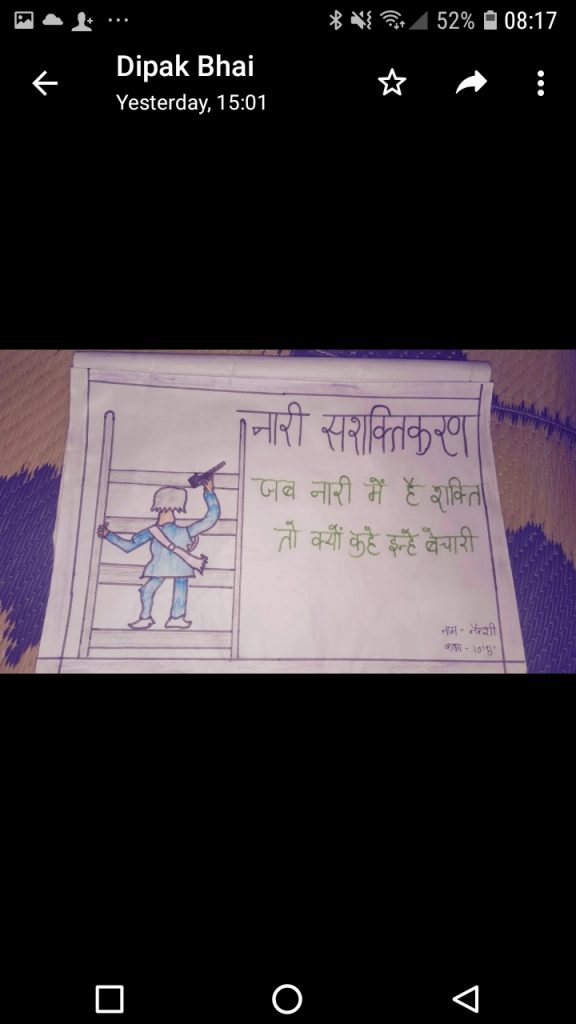 52% 08:17
Dipak Bhai
Yesterday, 15:01
नारी सशक्तिकरण
जब नारी में है शक्ति
तो क्यों कहे इन्हे बेचारी
नाम - नैन्शी
कक्षा -